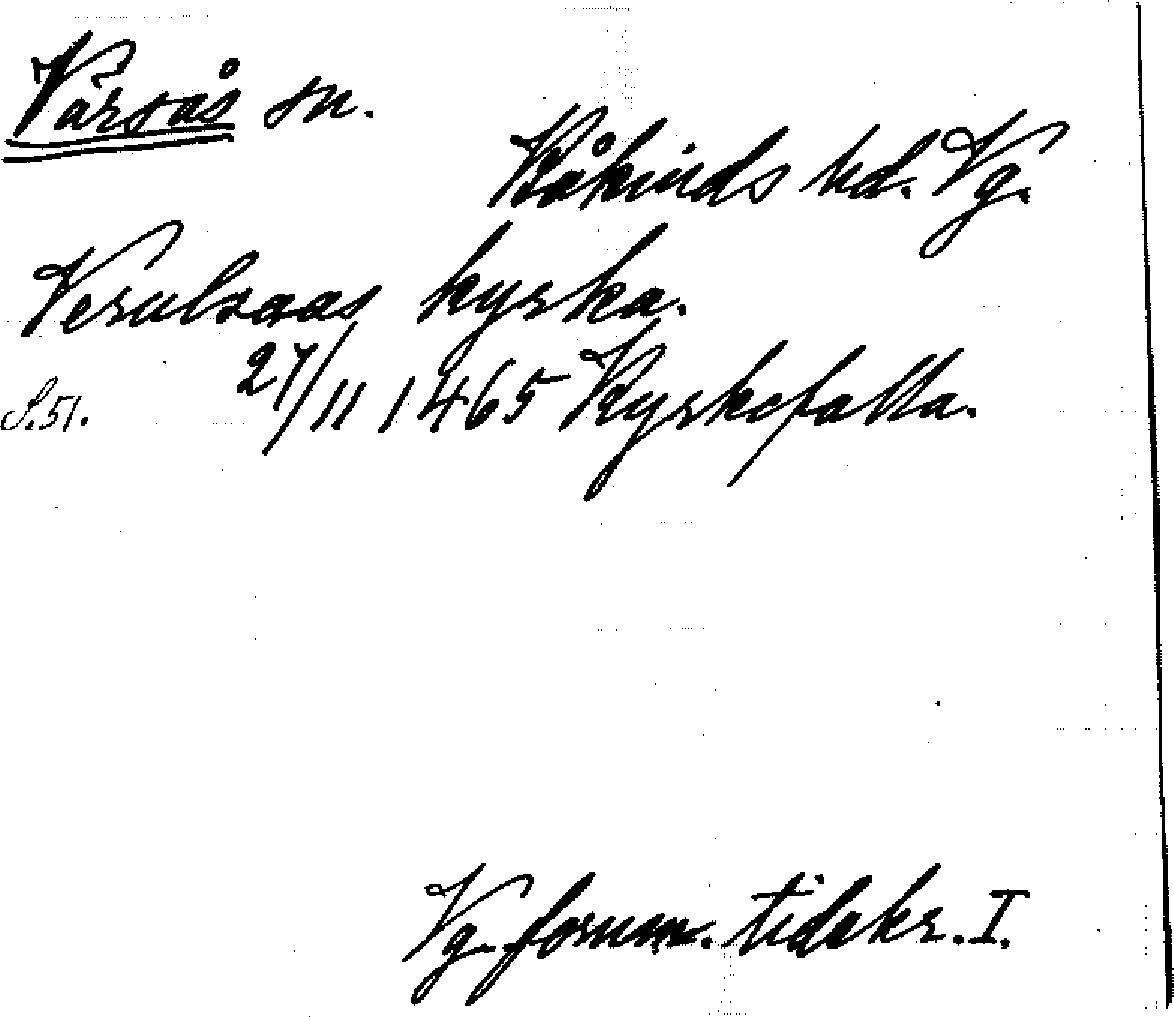 Värsås sn.
Kåkinds hd. Vg.
Verulsaas kyrka.
S. 51. 27/11 1465 Kyrkofalla.
Vg. fornm. tidskr. I.